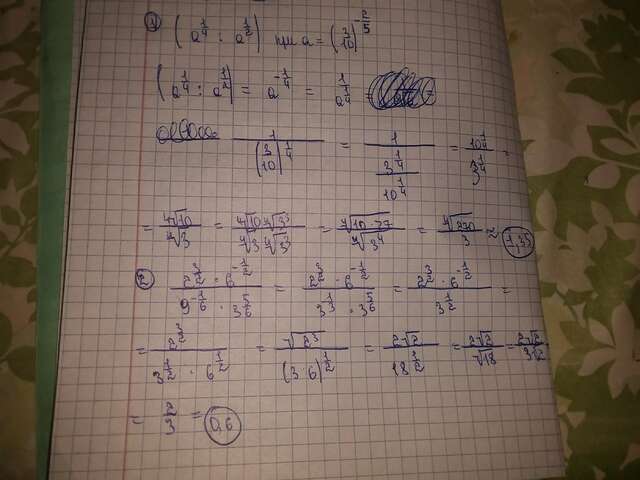 1) (a^(1/4) : a^(1/2)) при a = (3/10)^(-2/5)
(a^(1/4) : a^(1/2)) = a^(-1/4) = 1/a^(1/4) =
1/(3/10)^(1/4) = 1/(3^(1/4)/10^(1/4)) = 10^(1/4)/3^(1/4) =
= ⁴√10/⁴√3 = ⁴√10 ⁴√3³/⁴√3 ⁴√3³ = ⁴√(10·27)/⁴√3⁴ = ⁴√270/3 ≈ 1,35
2) 2^(3/2) · 6^(-1/2)/9^(-1/6) · 3^(5/6) = 2^(3/2) · 6^(-1/2)/3^(-1/3) · 3^(5/6) = 2^(3/2) · 6^(-1/2)/3^(1/2) =
= 2^(3/2)/3^(1/2) · 6^(1/2) = √2³/(3·6)^(1/2) = 2√2/18^(1/2) = 2√2/√18 = 2√2/3√2
= 2/3 = 0,6